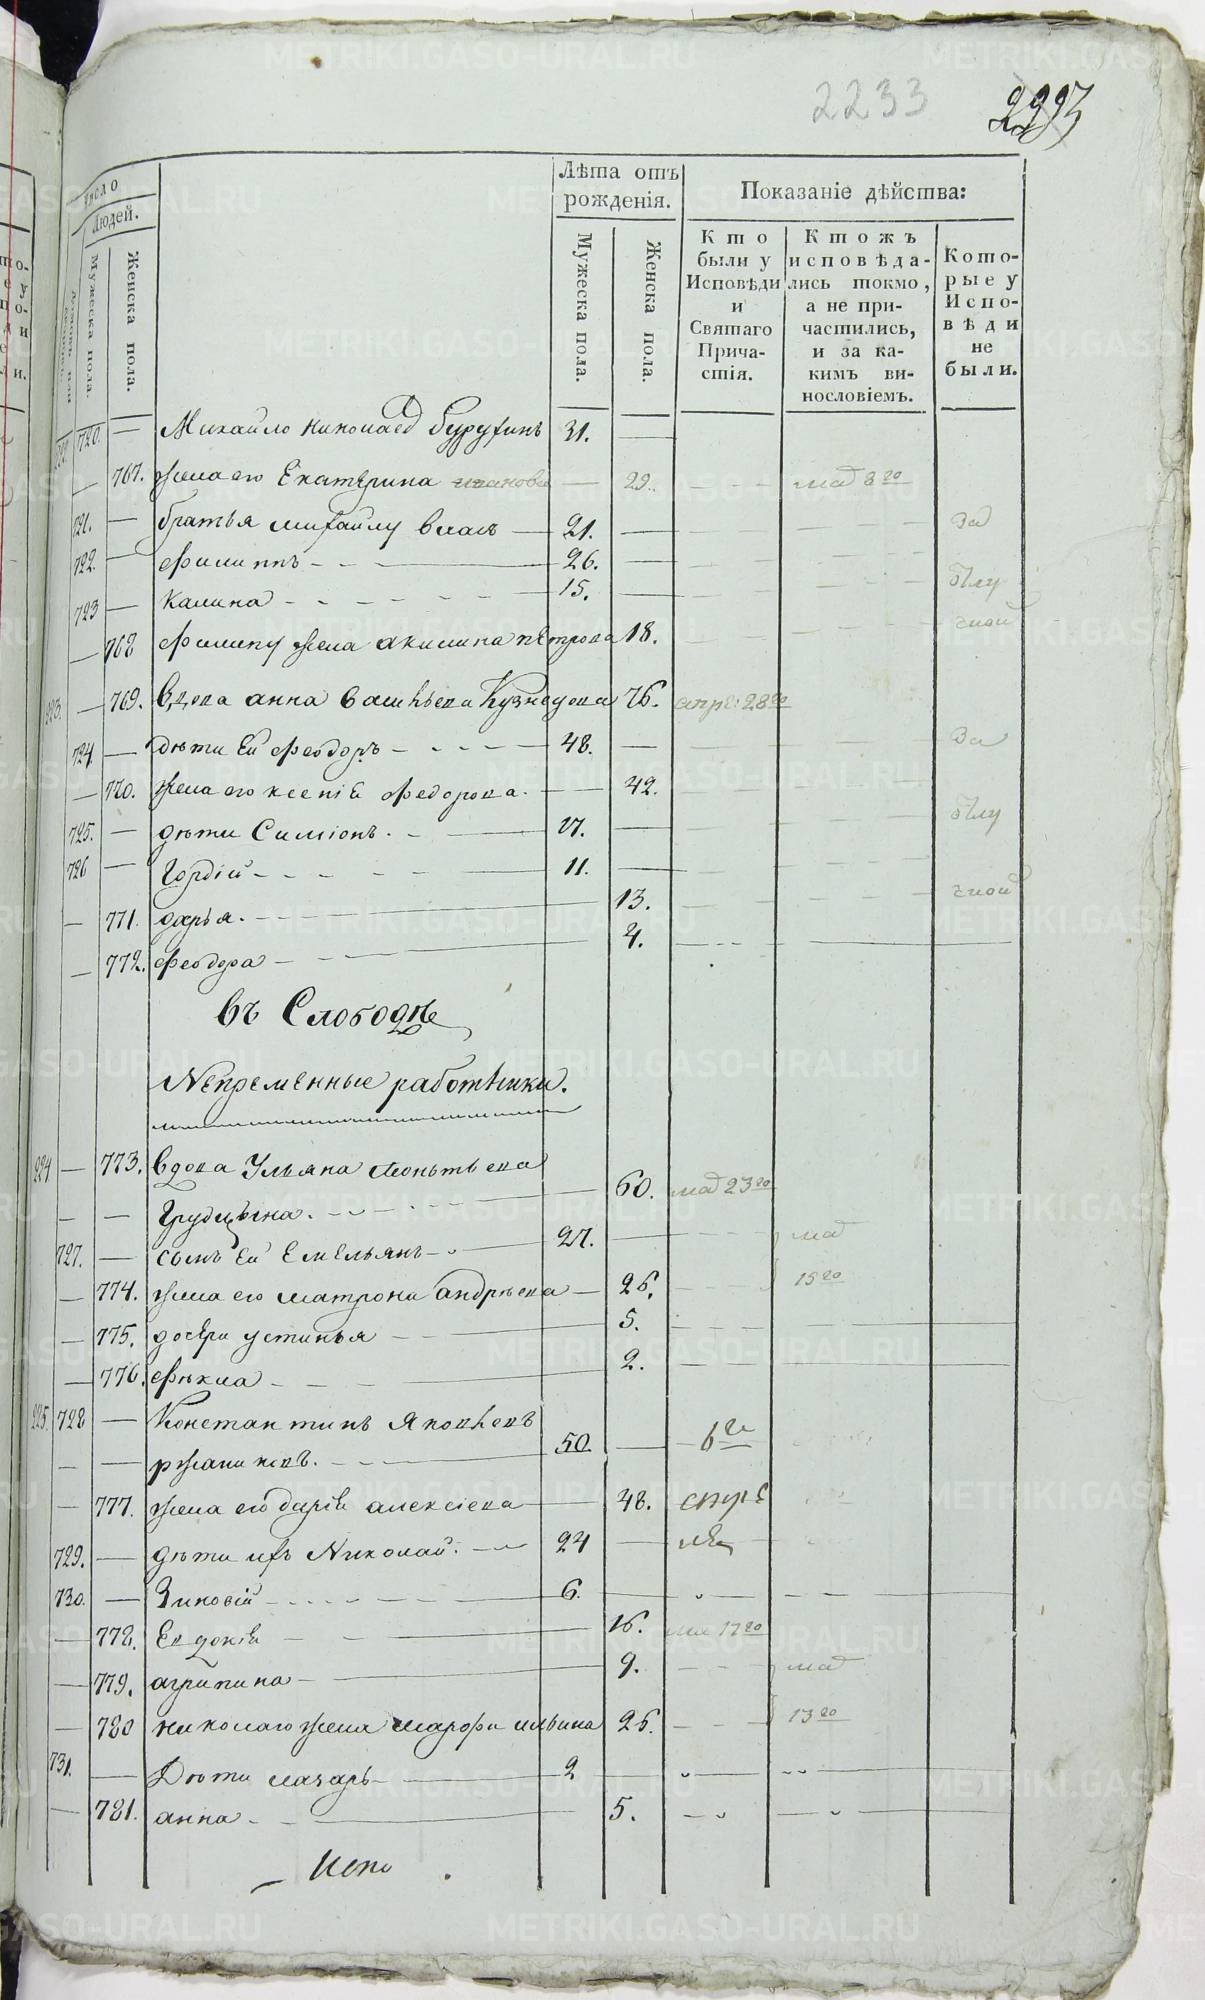 2233
Число
Людей.
Мужеска пола.
Женска пола.
Лѣта отъ
рожденія.
Мужеска пола.
Женска пола.
Показаніе дѣйства:
Кто
были у
Исповѣди
и
Святаго
Прича-
стія.
Ктожъ
исповѣда-
лись токмо,
а не при-
частились,
и за ка-
кимъ ви-
нословіемъ.
Кото-
рые у
Испо-
вѣди
не
были.
720. — Михайло Николаев 31. —
— 767. жена его Екатерина — 29. маія 8го
721. — братья Михайлу Власъ — 21. — за
722. — Филиппъ — 26. —
723 — Калина — 15. — бѣлу
— 768 Филипу жена Акилина Петрова 18. чной
223. — 769. вдова Анна Васильева Кузнецова 76. апре: 28го
724. — дѣти ей Феодоръ — 48. — за
— 770. жена его Ксенія Федорова. 42.
725. — дѣти Симіонъ. 17. — бѣлу
726 — Гордій — 11. —
— 771. дарья. — 13. чной
— 772. Феодора — 4.
въ Слободѣ
Непременные работники.
224 — 773. вдова Ульяна Леонтьева
— — Грудцына. 60. маія 23го
727. — сынъ ей Емельянъ — 27. — маія
— 774. жена его Матрона Андрѣева — 26. 15го
— 775. дочери устинья — 5.
— 776. Фекла — 2.
225. 728 — Константинъ Яковлевъ
— — 50. — 6го
— 777. жена его дарія алексіева — 48.
729. — дѣти ихъ Николай. — 24 —
730. — Зиновій — 6. —
— 778. Евдокія — 16. маія 17го
— 779. агрипина — 9. маія
— 780 николаю жена Марфа ильина 26. 13го
731. — Дѣти лазарь — 2 —
— 781. анна — 5.